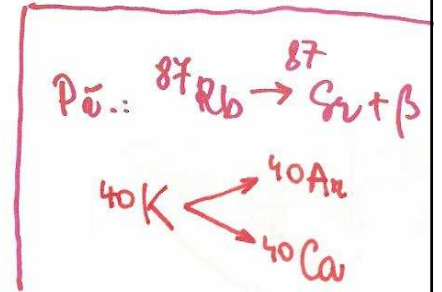 Př.: ⁸⁷Rb → ⁸⁷Sr + β
⁴⁰Ar
⁴⁰K
⁴⁰Ca